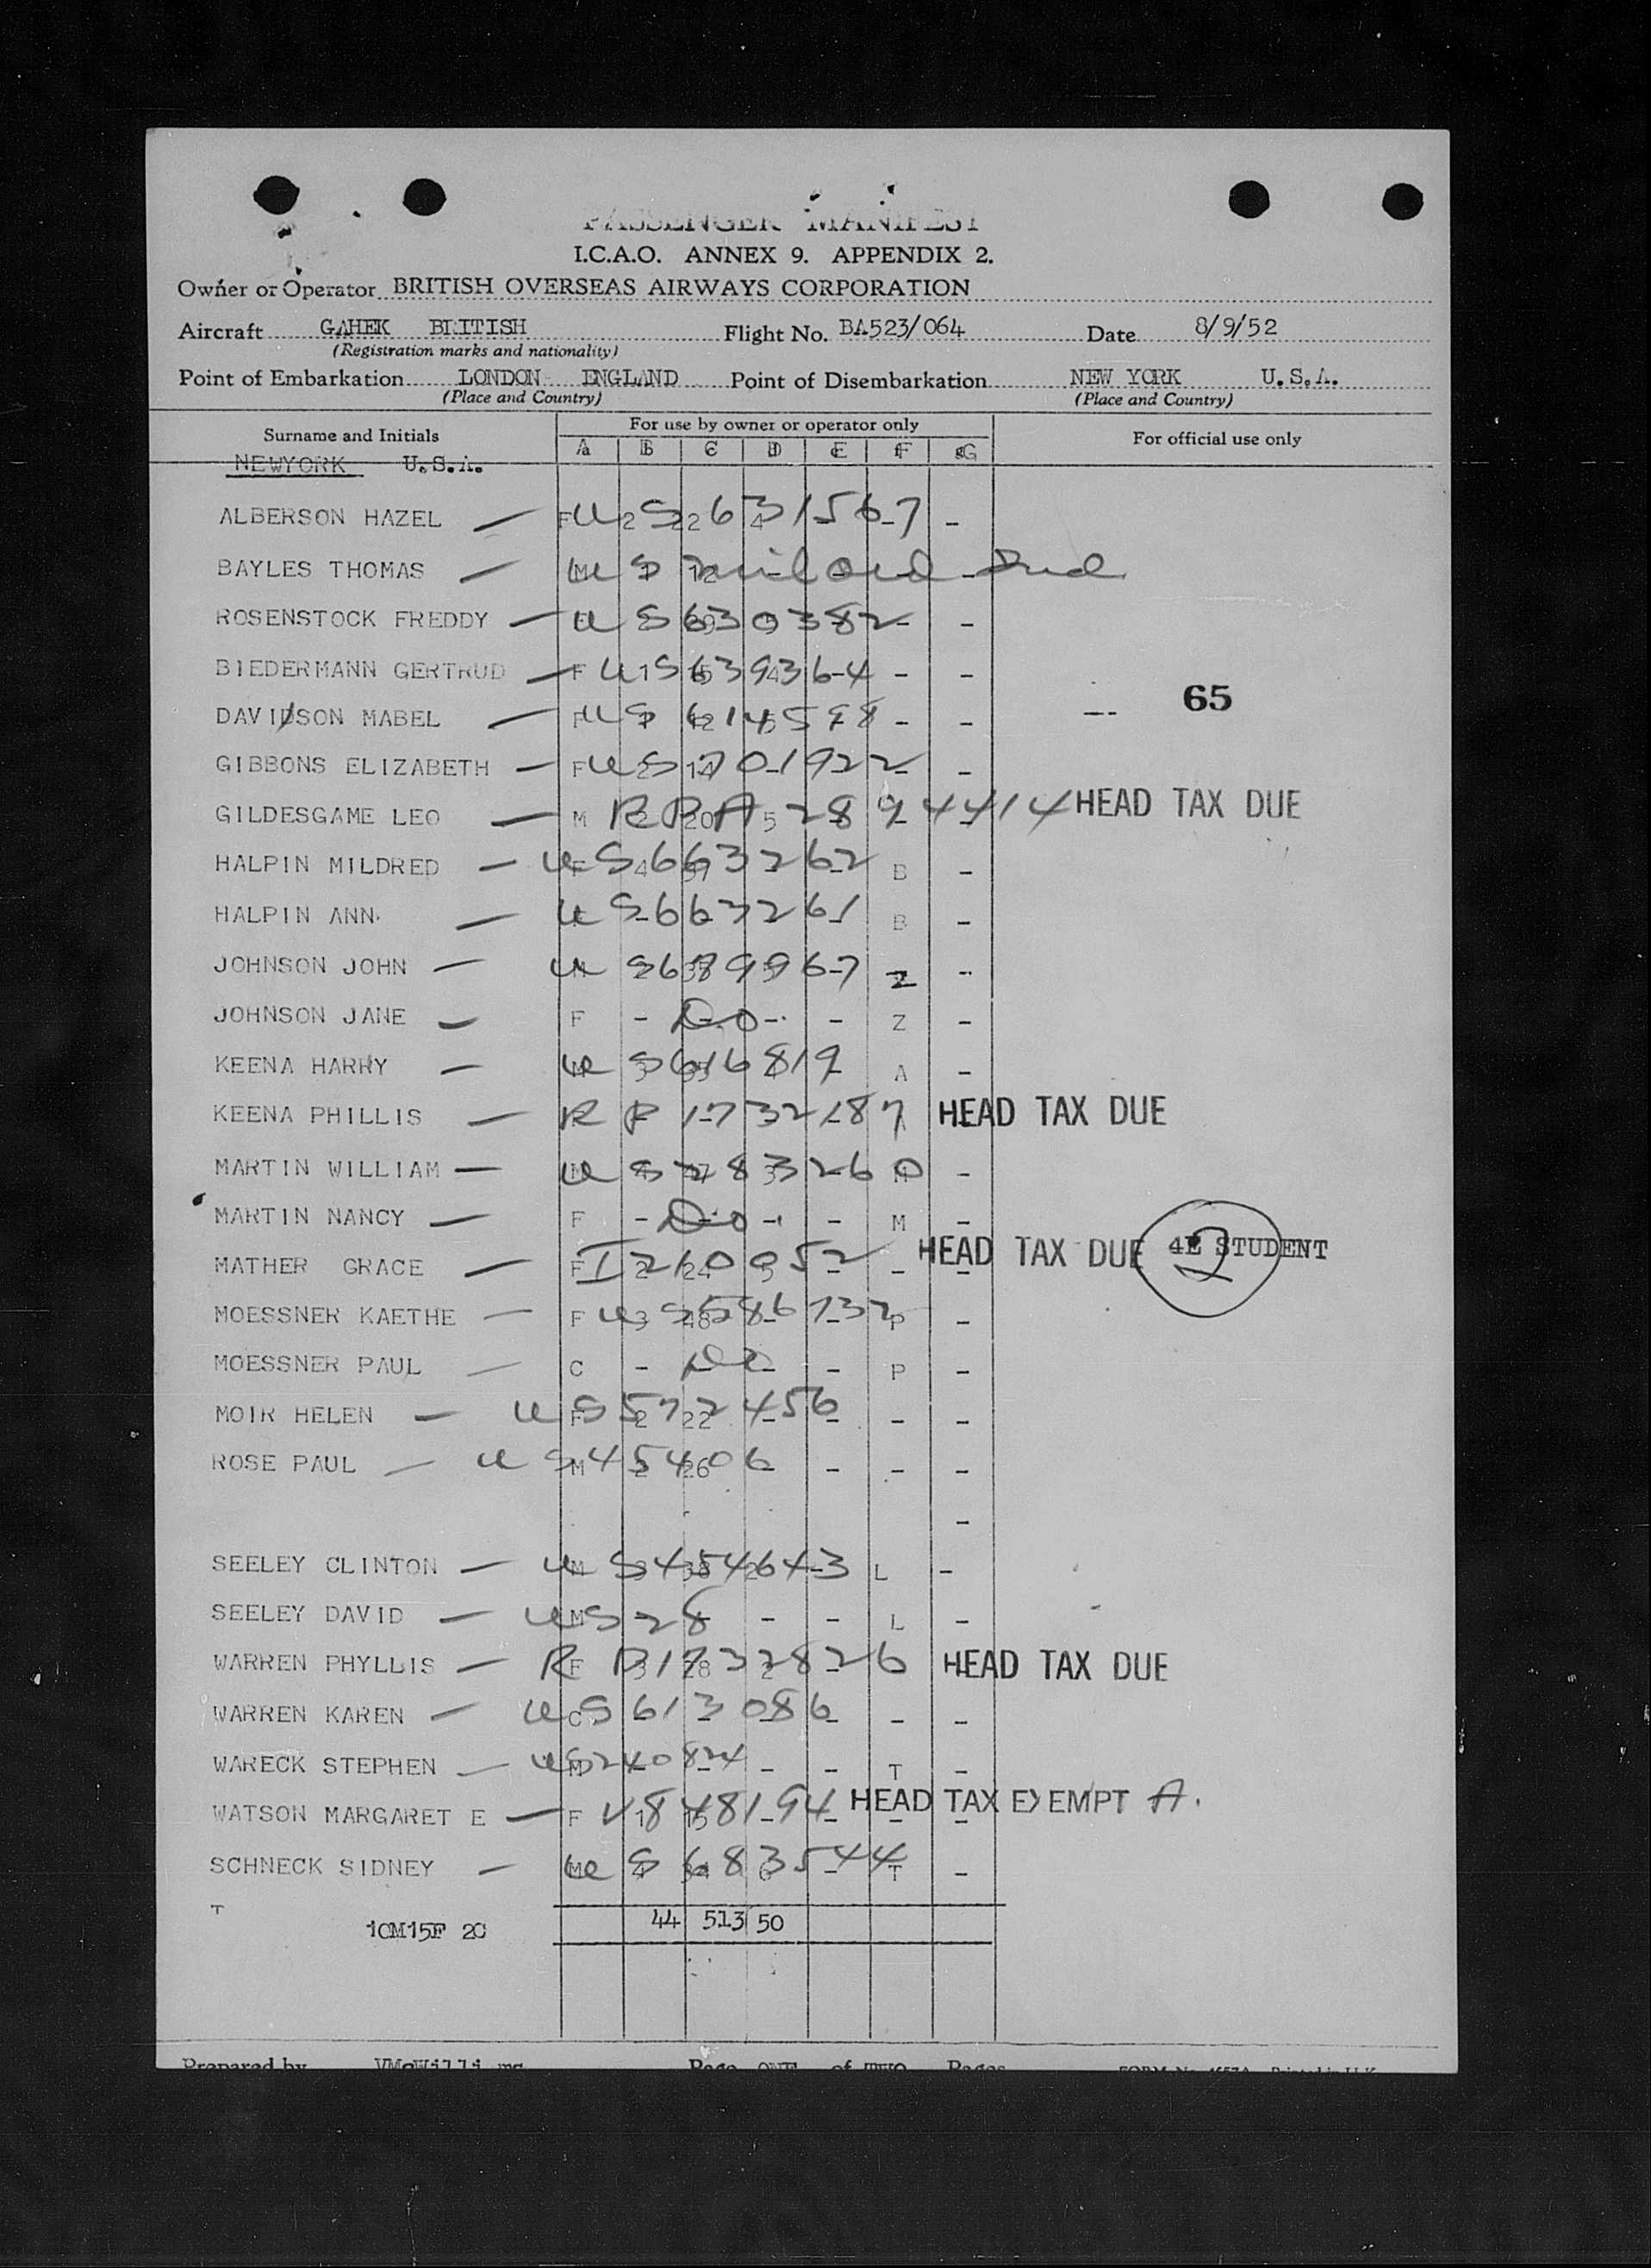 PASSENGER MANIFEST
I.C.A.O. ANNEX 9. APPENDIX 2.
Owner or Operator BRITISH OVERSEAS AIRWAYS CORPORATION
Aircraft GAHEK BRITISH Flight No. BA523/064 Date 8/9/52
(Registration marks and nationality)
Point of Embarkation LONDON ENGLAND Point of Disembarkation NEW YORK U.S.A.
(Place and Country) (Place and Country)
Surname and Initials For use by owner or operator only For official use only
A B C D E F G
NEWYORK U.S.A.
ALBERSON HAZEL — F US 631567 -
BAYLES THOMAS — US
ROSENSTOCK FREDDY — US 630382 -
BIEDERMANN GERTRUD — F US 639364 - -
65
DAVIDSON MABEL — F US 614598 - -
GIBBONS ELIZABETH — F US 701922 -
GILDESGAME LEO — M RP A 2894414 HEAD TAX DUE
HALPIN MILDRED — US 663262 B -
HALPIN ANN — US 663261 B -
JOHNSON JOHN — US 689967 Z -
JOHNSON JANE — F - Do - - Z -
KEENA HARRY — US 616819 A -
KEENA PHILLIS — RP 1732187 HEAD TAX DUE
MARTIN WILLIAM — US 283260 -
MARTIN NANCY — F - Do - - M -
MATHER GRACE — F I 260952 - HEAD TAX DUE 4E STUDENT 2
MOESSNER KAETHE — F US 586732 P -
MOESSNER PAUL — C - Do - P -
MOIR HELEN — US 572456 - -
ROSE PAUL — US 45406 - - -
-
SEELEY CLINTON — US 454643 L -
SEELEY DAVID — US 28 - - L -
WARREN PHYLLIS — RP 1732826 HEAD TAX DUE
WARREN KAREN — C US 613086 - -
WARECK STEPHEN — US 240824 - - T -
WATSON MARGARET E — F V 848194 HEAD TAX EXEMPT A.
SCHNECK SIDNEY — US 683544 T -
T
10M15F 2C 44 513 50
Prepared by VMcWilliams Page ONE of TWO Pages